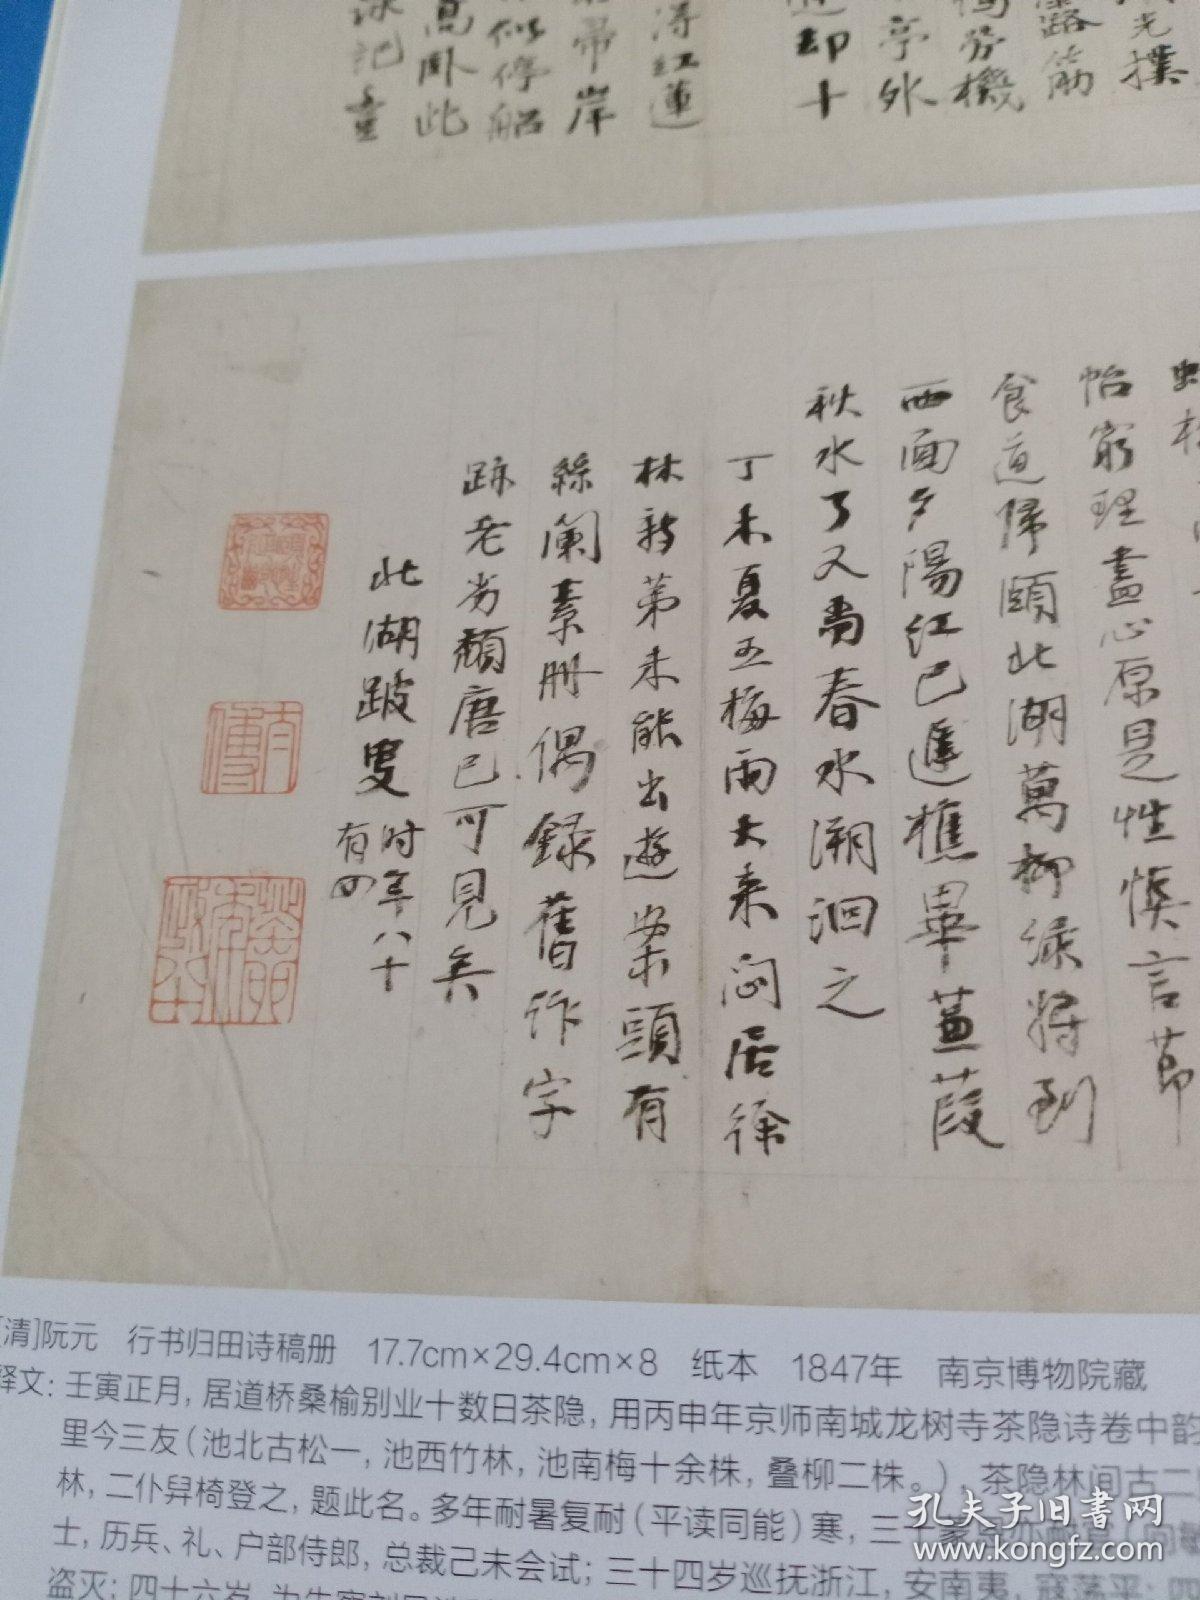 光撲
路筋
芬機
亭外
却十
紅蓮
帚岸
似停船
高卧此
記童
怡窮理盡心原是性悞言節
食道歸頤此湖萬柳綠將到
西面夕陽紅已進樵畢蒹葭
秋水了又為春水溯洄之
丁未夏五梅雨大來悶居徐
林新第未能出遊案頭有
絲闌素冊偶錄舊作字
跡老劣頹唐已可見矣
此湖跛叟时年八十
有四
[清]阮元 行书归田诗稿册 17.7cm×29.4cm×8 纸本 1847年 南京博物院藏
释文：壬寅正月，居道桥桑榆别业十数日茶隐，用丙申年京师南城龙树寺茶隐诗卷中韵
里今三友（池北古松一，池西竹林，池南梅十余株，叠柳二株。），茶隐林间古二
林，二仆舁椅登之，题此名。多年耐暑复耐（平读同能）寒，三
士，历兵、礼、户部侍郎，总裁己未会试；三十四岁巡抚浙江，安南夷，寇荡平；四
盗灭；四十六岁
孔夫子旧书网
www.kongfz.com